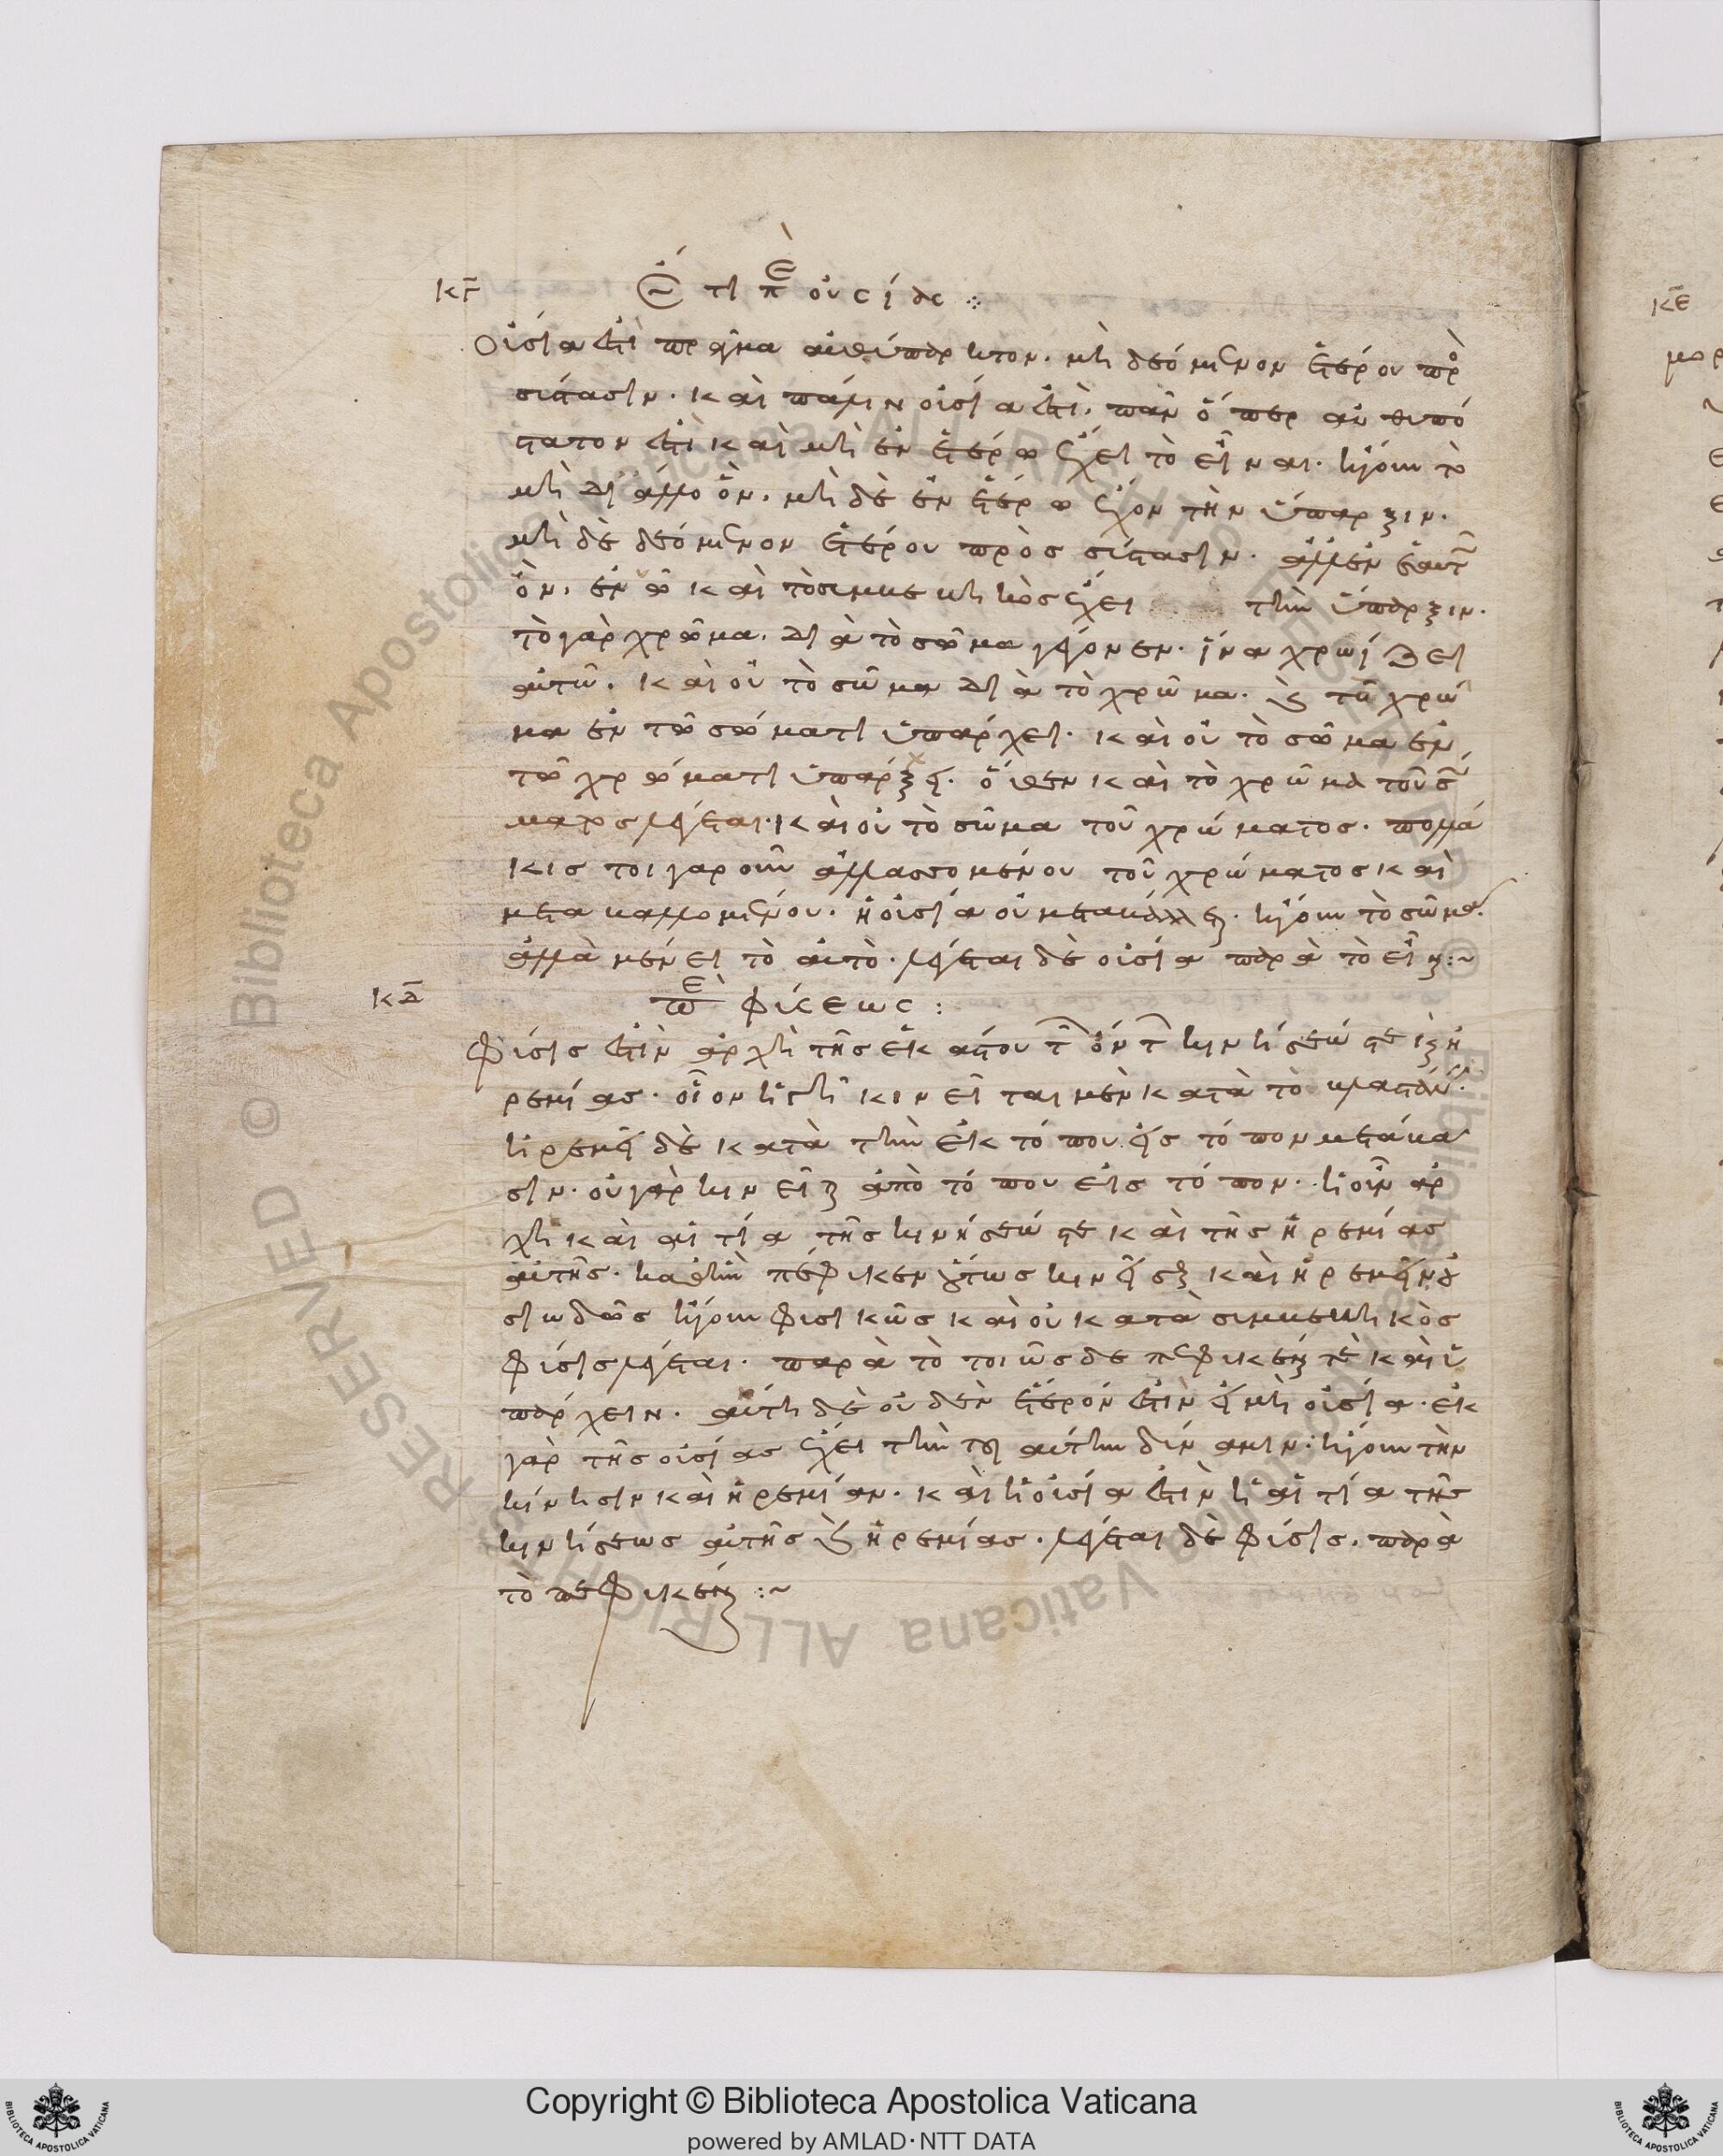 κγ ἔτι περὶ οὐσίας
Οὐσία ἐστὶ πρᾶγμα αὐθύπαρκτον. μὴ δεόμενον ἑτέρου πρὸς
σύστασιν. καὶ πάλιν οὐσία ἐστὶ. πᾶν ὅπερ αὐθυπό
στατον ἐστὶ καὶ μὴ ἐν ἑτέρω ἔχει τὸ εἶναι. ἤγουν τὸ
μὴ δι' ἄλλο ὂν. μὴ δὲ ἐν ἑτέρω ἔχον τὴν ὕπαρξιν.
μὴ δὲ δεόμενον ἑτέρου πρὸς σύστασιν. ἀλλ' ἐν ἑαυτῶ
ὂν. ἐν ὧ καὶ τὸ συμβεβηκὸς ἔχει τὴν ὕπαρξιν.
τὸ γὰρ χρῶμα. διὰ τὸ σῶμα γέγονεν. ἵνα χρωίζει
αὐτῶ. καὶ οὐ τὸ σῶμα διὰ τὸ χρῶμα. καὶ τὸ χρῶ
μα ἐν τῶ σώματι ὑπάρχει. καὶ οὐ τὸ σῶμα ἐν
τῶ χρώματι ὑπάρξει. ὅθεν καὶ τὸ χρῶμα τοῦ σώ
ματος λέγεται. καὶ οὐ τὸ σῶμα τοῦ χρώματος. πολλά
κις τοιγαροῦν ἀλλασσομένου τοῦ χρώματος καὶ
μεταβαλλομένου. ἡ οὐσία οὐ μεταβάλλεται. ἤγουν τὸ σῶμα.
ἀλλὰ μένει τὸ αὐτὸ. λέγεται δὲ οὐσία παρὰ τὸ εἶναι :~
κδ περὶ φύσεως :
Φύσις ἐστὶν ἀρχὴ τῆς ἑκάστου τῶν ὄντων κινήσεώς τε καὶ ἠ
ρεμίας. οἷον ἡ γῆ κινεῖται μὲν κατὰ τὸ βλαστάνειν.
ἠρεμεῖ δὲ κατὰ τὴν ἐκ τόπου εἰς τόπον μετάβα
σιν. οὐ γὰρ κινεῖται ἀπὸ τόπου εἰς τόπον. ἡ οὖν ἀρ
χὴ καὶ αἰτία τῆς κινήσεώς τε καὶ τῆς ἠρεμίας
αὐτῆς. καθ' ἣν πέφυκεν οὕτως κινεῖσθαι καὶ ἠρεμεῖν οὐ
σιωδῶς ἤγουν φυσικῶς καὶ οὐ κατὰ συμβεβηκὸς
φύσις λέγεται. παρὰ τὸ τοιῶσδε πεφυκέναι τὲ καὶ ὑ
πάρχειν. αὕτη δὲ οὐδὲν ἕτερόν ἐστὶν εἰ μὴ οὐσία. ἐκ
γὰρ τῆς οὐσίας ἔχει τὴν τοιαύτην δύναμιν. ἤγουν τὴν
κίνησιν καὶ ἠρεμίαν. καὶ ἡ οὐσία ἐστὶν ἡ αἰτία τῆς
κινήσεως αὐτῆς καὶ ἠρεμίας. λέγεται δὲ φύσις. παρὰ
τὸ πεφυκέναι :~
κε
Copyright © Biblioteca Apostolica Vaticana
powered by AMLAD·NTT DATA